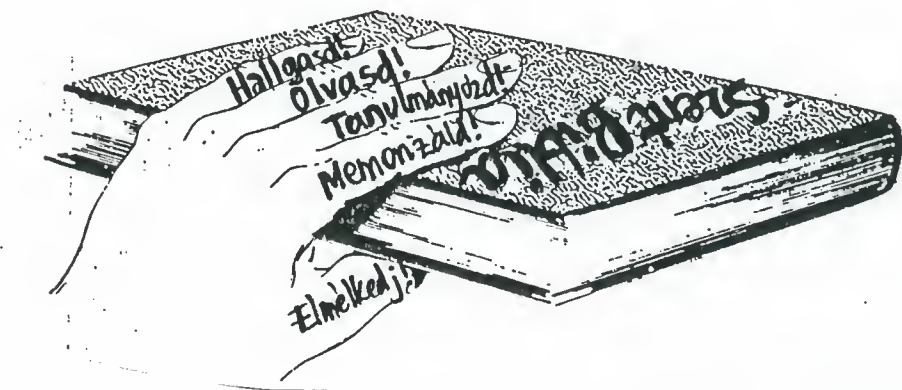 Hallgasd!
Olvasd!
Tanulmányozd!
Memorizáld!
Elmélkedj!
Szent Biblia